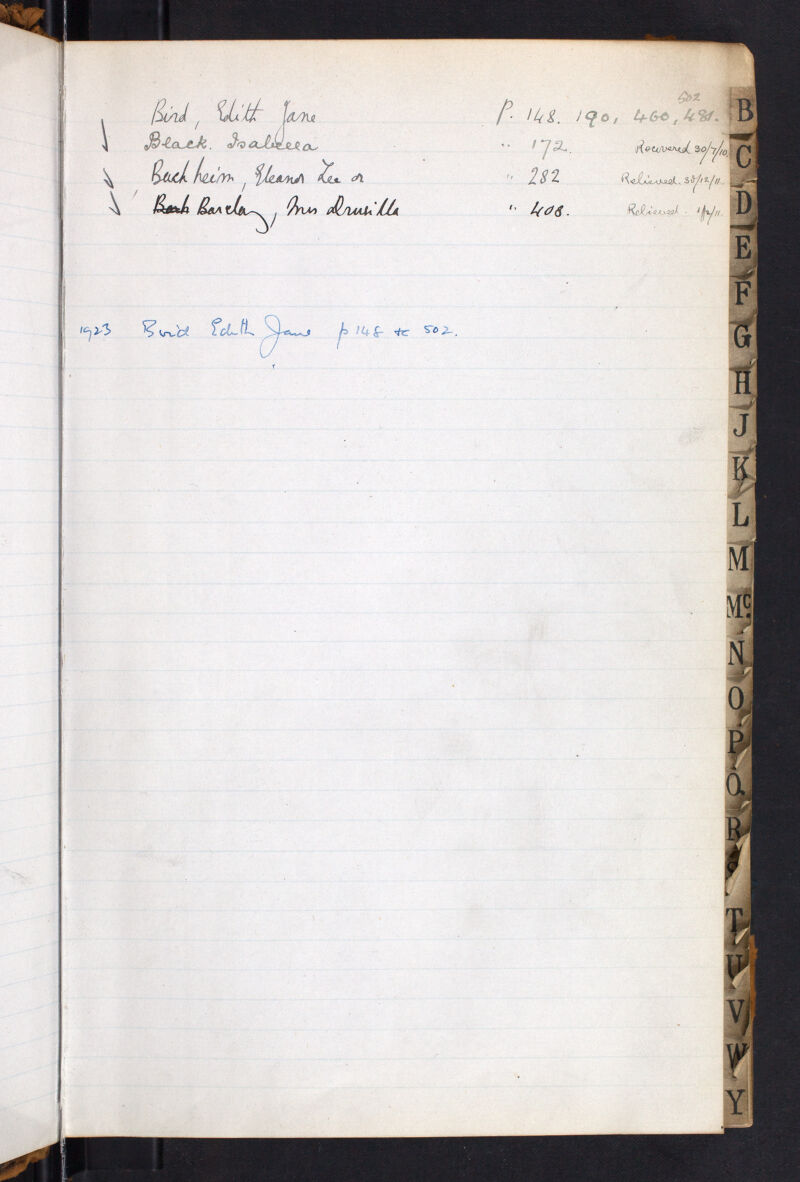 502
Bird, Edith Jane P. 148. 190, 460, 481.
Black. Isabella " 172. Recovered 30/7/10
Buchheim, Eleanor Lee or " 282 Relieved. 30/12/11.
Barclay, Mrs Drusilla " 408. Relieved. 1/2/11.
1923 Bird Edith Jane p 148 to 502.
B
C
D
E
F
G
H
J
K
L
M
Mc.
N
O
P
Q.
R
S
T
U
V
W
Y